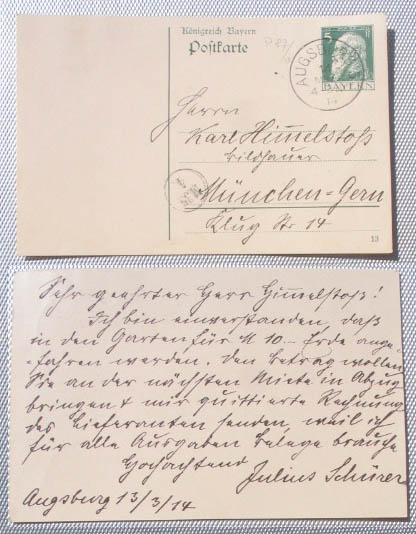 Königreich Bayern
Postkarte
5
BAYERN
AUGSBURG
14
Herrn
Karl Himmelstoß
Bildhauer
München-Gern
Klug Str 14
13
Sehr geehrter Herr Himmelstoß!
Ich bin einverstanden, daß
in den Garten für M 10.- Erde ange-
fahren werden. Den Betrag wollen
Sie an der nächsten Miete in Abzug
bringen & mir quittierte Rechnung
des Lieferanten senden, weil ich
für alle Ausgaben Belege brauche
Hochachtend
Julius Schürer
Augsburg 13/3/14